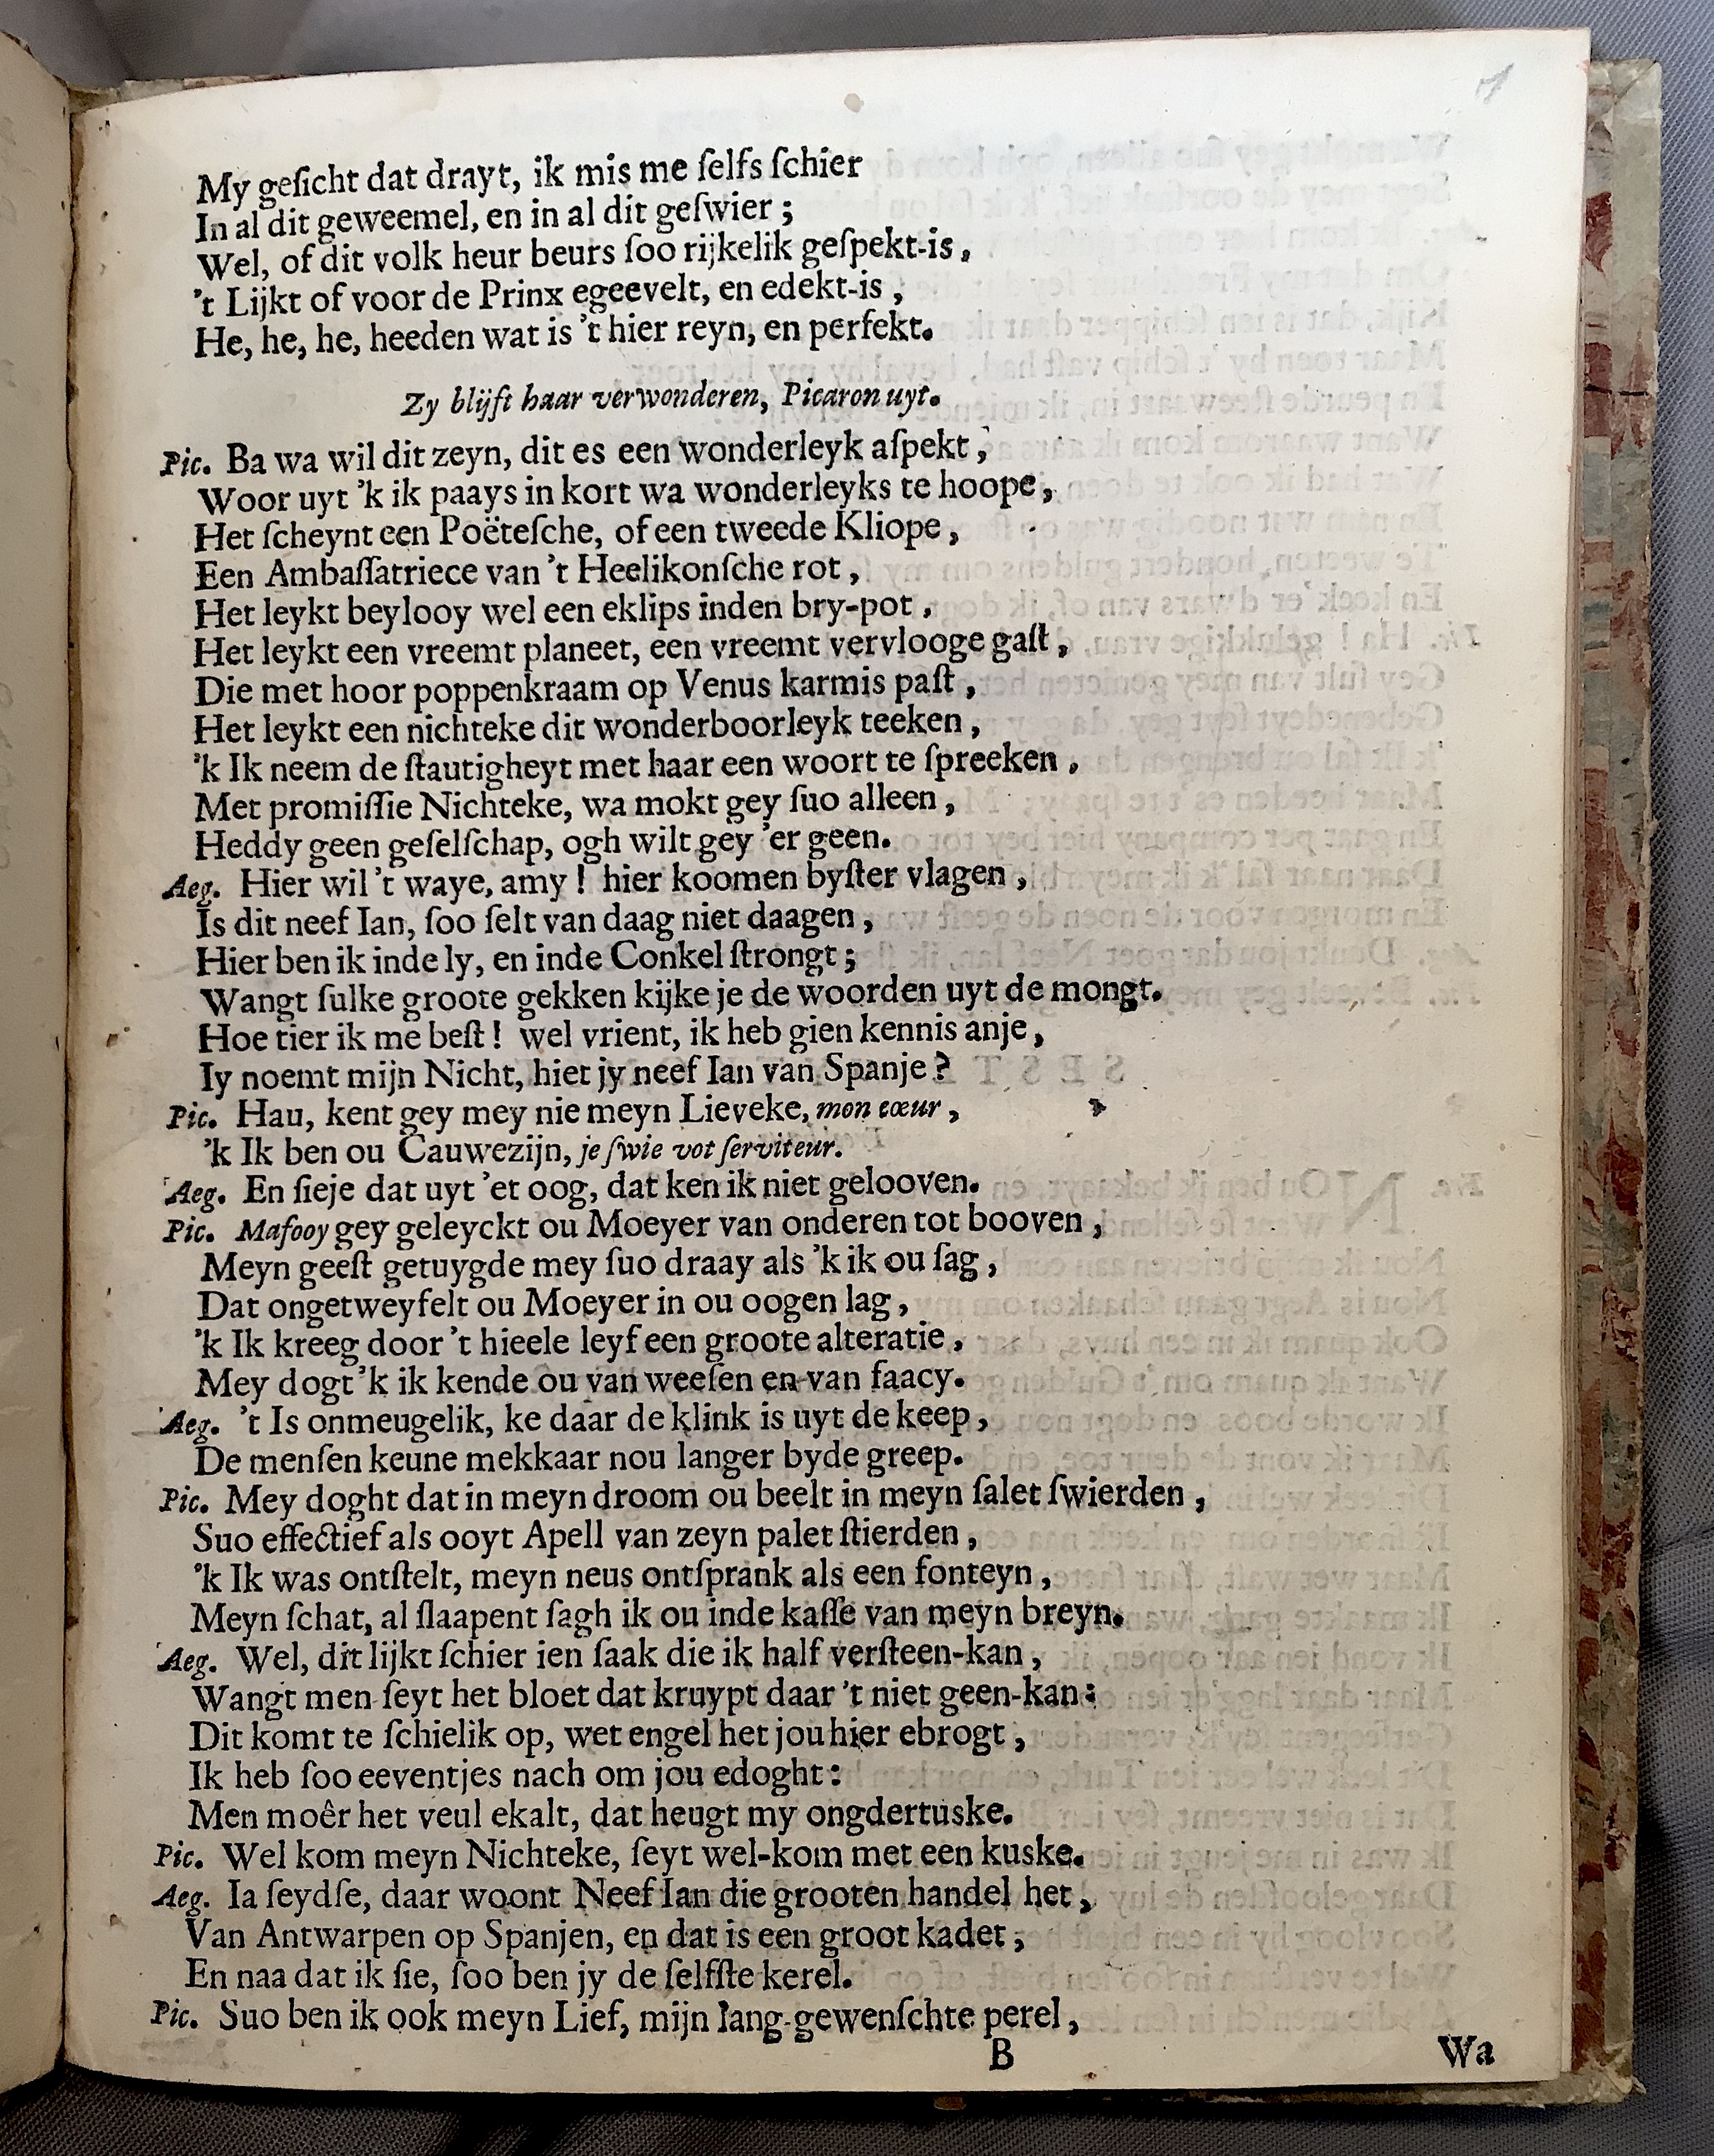 My geſicht dat drayt, ik mis me ſelfs ſchier
In al dit geweemel, en in al dit geſwier;
Wel, of dit volk heur beurs ſoo rijkelik geſpekt-is,
't Lijkt of voor de Prinx egeevelt, en edekt-is,
He, he, he, heeden wat is 't hier reyn, en perfekt.
Zy blijft haar verwonderen, Picaron uyt.
Pic. Ba wa wil dit zeyn, dit es een wonderleyk aſpekt,
Woor uyt 'k ik paays in kort wa wonderleyks te hoope,
Het ſcheynt een Poëteſche, of een tweede Kliope,
Een Ambaſſatriece van 't Heelikonſche rot,
Het leykt beylooy wel een eklips inden bry-pot,
Het leykt een vreemt planeet, een vreemt vervlooge gaſt,
Die met hoor poppenkraam op Venus karmis paſt,
Het leykt een nichteke dit wonderboorleyk teeken,
'k Ik neem de ſtautigheyt met haar een woort te ſpreeken,
Met promiſſie Nichteke, wa mokt gey ſuo alleen,
Heddy geen geſelſchap, ogh wilt gey 'er geen.
Aeg. Hier wil 't waye, amy! hier koomen byſter vlagen,
Is dit neef Ian, ſoo ſelt van daag niet daagen,
Hier ben ik inde ly, en inde Conkel ſtrongt;
Wangt ſulke groote gekken kijke je de woorden uyt de mongt.
Hoe tier ik me beſt! wel vrient, ik heb gien kennis anje,
Iy noemt mijn Nicht, hiet jy neef Ian van Spanje?
Pic. Hau, kent gey mey nie meyn Lieveke, mon cœur,
'k Ik ben ou Cauwezijn, je ſwie vot ſerviteur.
Aeg. En ſieje dat uyt 'et oog, dat ken ik niet gelooven.
Pic. Mafooy gey geleyckt ou Moeyer van onderen tot booven,
Meyn geeſt getuygde mey ſuo draay als 'k ik ou ſag,
Dat ongetweyfelt ou Moeyer in ou oogen lag,
'k Ik kreeg door 't hieele leyf een groote alteratie,
Mey dogt 'k ik kende ou van weeſen en van faacy.
Aeg. 't Is onmeugelik, ke daar de klink is uyt de keep,
De menſen keune mekkaar nou langer byde greep.
Pic. Mey doght dat in meyn droom ou beelt in meyn ſalet ſwierden,
Suo effectief als ooyt Apell van zeyn palet ſtierden,
'k Ik was ontſtelt, meyn neus ontſprank als een fonteyn,
Meyn ſchat, al ſlaapent ſagh ik ou inde kaſſe van meyn breyn.
Aeg. Wel, dit lijkt ſchier ien ſaak die ik half verſteen-kan,
Wangt men ſeyt het bloet dat kruypt daar 't niet geen-kan:
Dit komt te ſchielik op, wet engel het jou hier ebrogt,
Ik heb ſoo eeventjes nach om jou edoght:
Men moêr het veul ekalt, dat heugt my ongdertuske.
Pic. Wel kom meyn Nichteke, ſeyt wel-kom met een kuske.
Aeg. Ia ſeydſe, daar woont Neef Ian die grooten handel het,
Van Antwarpen op Spanjen, en dat is een groot kadet,
En naa dat ik ſie, ſoo ben jy de ſelfſte kerel.
Pic. Suo ben ik ook meyn Lief, mijn lang-gewenſchte perel,
B Wa